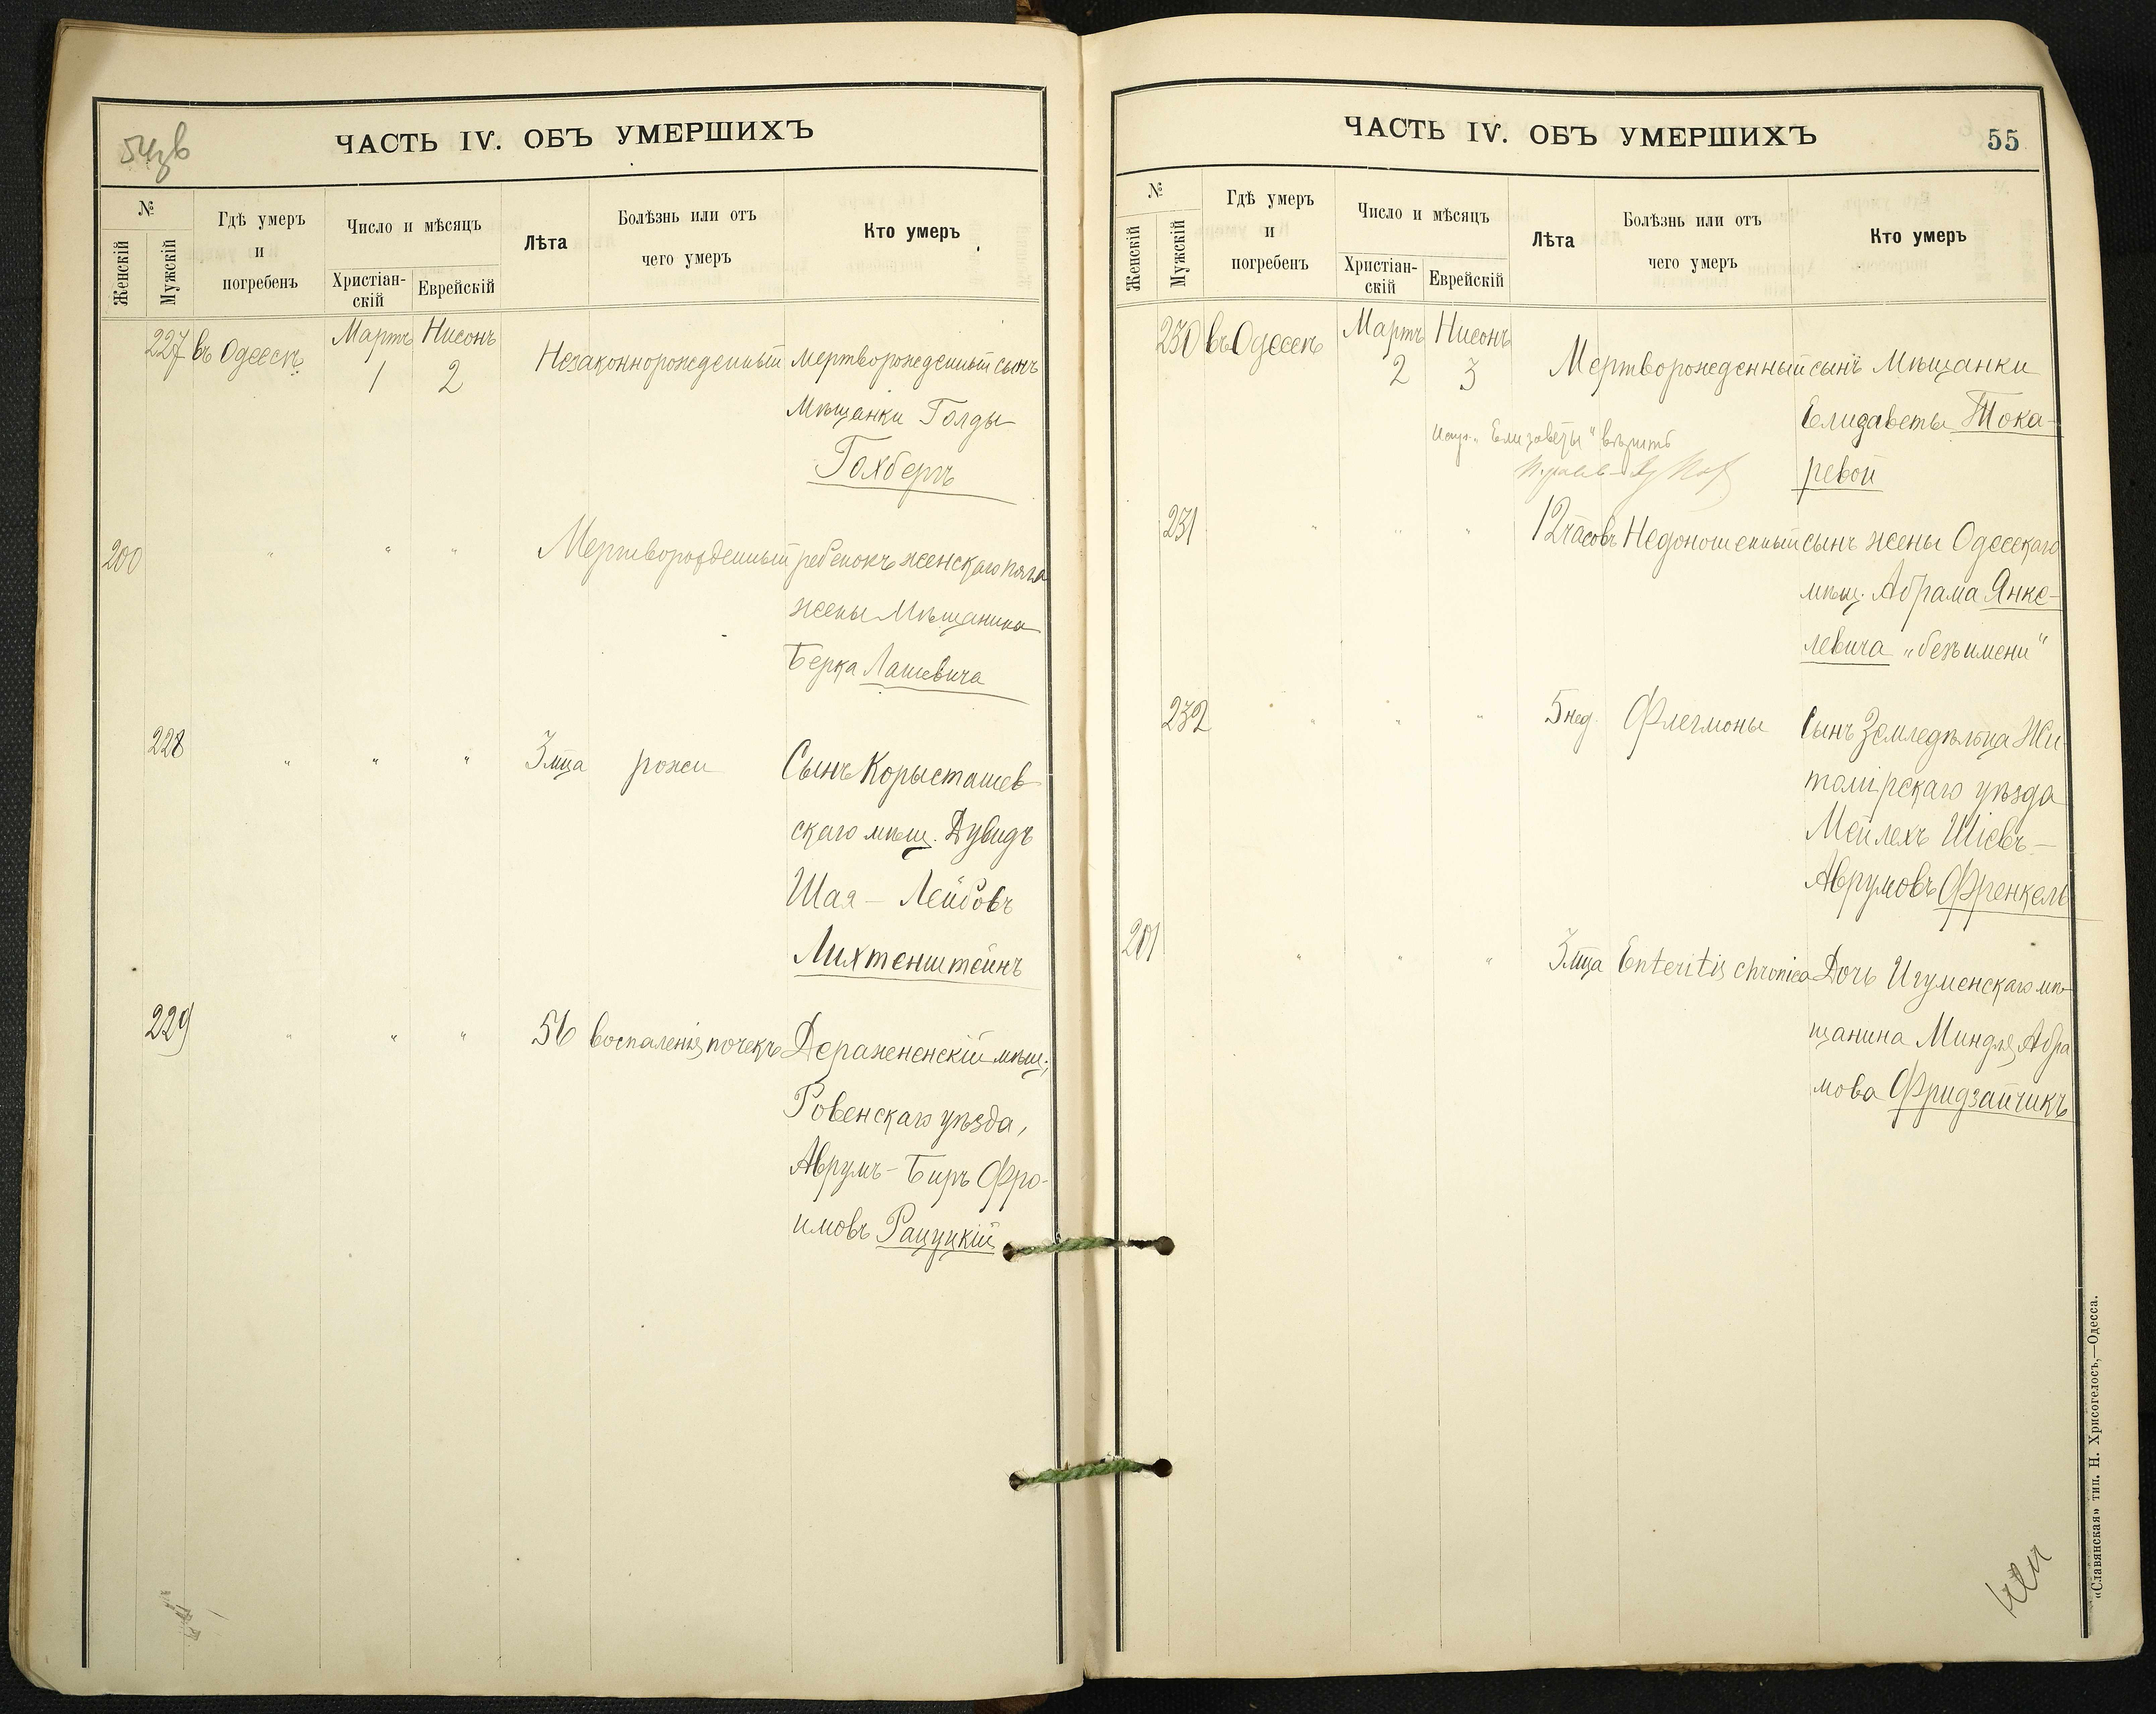 ЧАСТЬ IV. ОБЪ УМЕРШИХЪ
№
Женскій
Мужскій
Гдѣ умеръ
и
погребенъ
Число и мѣсяцъ
Христіан-
скій
Еврейскій
Лѣта
Болѣзнь или отъ
чего умеръ
Кто умеръ
227 въ Одессѣ Мартъ Нисонъ
1 2 Незаконнорожденный мертворожденный сынъ
Мѣщанки Голды
Гохбергъ
200 " " " Мертворожденный ребенокъ женскаго пола
жены Мѣщанина
Берка Лашевича
228 " " " 3 мца рожи Сынъ Корысташев
скаго мѣщ. Дувидъ
Шая - Лейбовъ
Лихтенштейнъ
229 " " " 56 воспаленія почекъ Деражненскій мѣщ.,
Ровенскаго уѣзда,
Аврумъ - Беръ Фро-
имовъ Рацуцкій
ЧАСТЬ IV. ОБЪ УМЕРШИХЪ
55
№
Женскій
Мужскій
Гдѣ умеръ
и
погребенъ
Число и мѣсяцъ
Христіан-
скій
Еврейскій
Лѣта
Болѣзнь или отъ
чего умеръ
Кто умеръ
230 въ Одессѣ Мартъ Нисонъ
2 3 Мертворожденный сынъ Мѣщанки
Елизаветы Тока-
"Елизаветы" вѣрить
ревой
231 " " " 12 часовъ Недоношенный сынъ жены Одесскаго
мѣщ. Абрама Янке-
левича „безъ имени"
232 " " " 5 нед. Флегмоны Сынъ Земледѣльца Жи-
томірскаго уѣзда
Мейлехъ Шіевъ -
Аврумовъ Френкель
201 " " " 3 мца Enteritis chronica Дочь Игуменскаго мѣ-
щанина Миндля Абра
мова Фридзайчикъ
«Славянская» тип. Н. Хрисогелосъ,—Одесса.